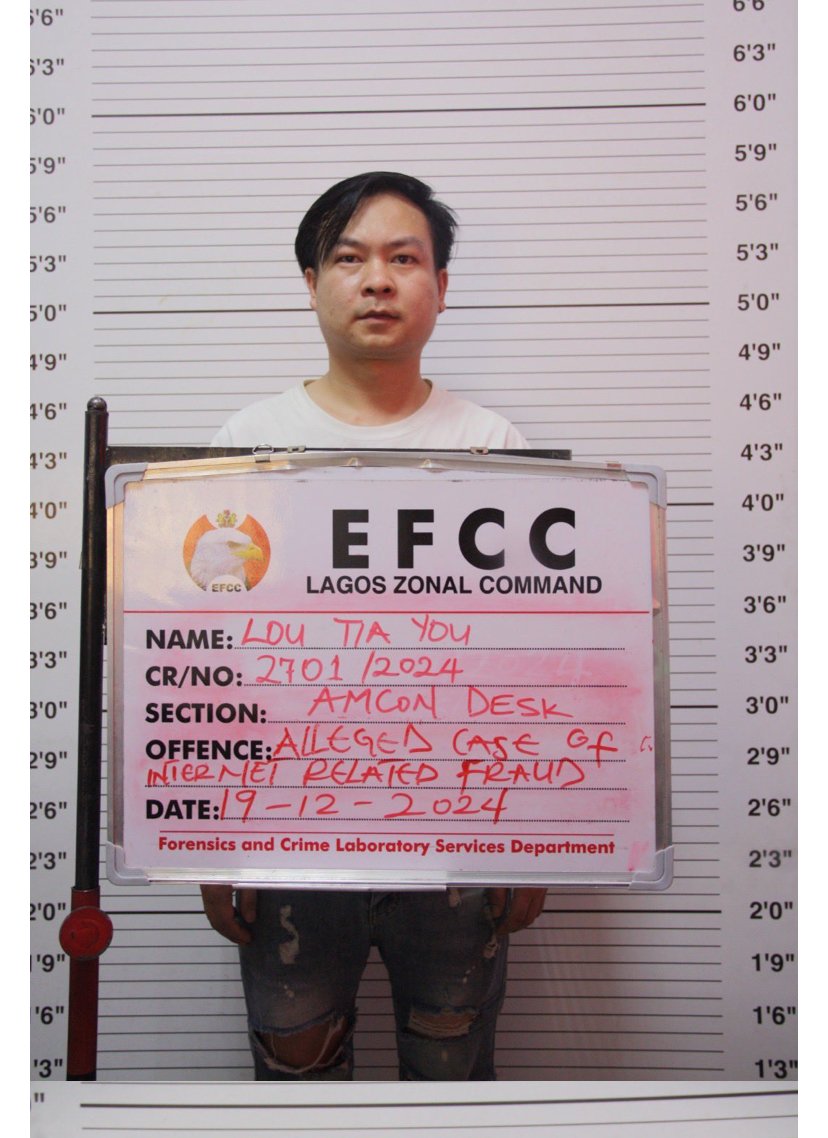 6'3"
6'0"
5'9"
5'6"
5'3"
5'0"
4'9"
4'6"
4'3"
4'0"
3'9"
3'6"
3'3"
3'0"
2'9"
2'6"
2'3"
2'0"
1'9"
1'6"
1'3"
EFCC
EFCC
LAGOS ZONAL COMMAND
NAME: LOU TIA YOU
CR/NO: 2701/2024
SECTION: AMCON DESK
OFFENCE: ALLEGED CASE OF
INTERNET RELATED FRAUD
DATE: 19-12-2024
Forensics and Crime Laboratory Services Department